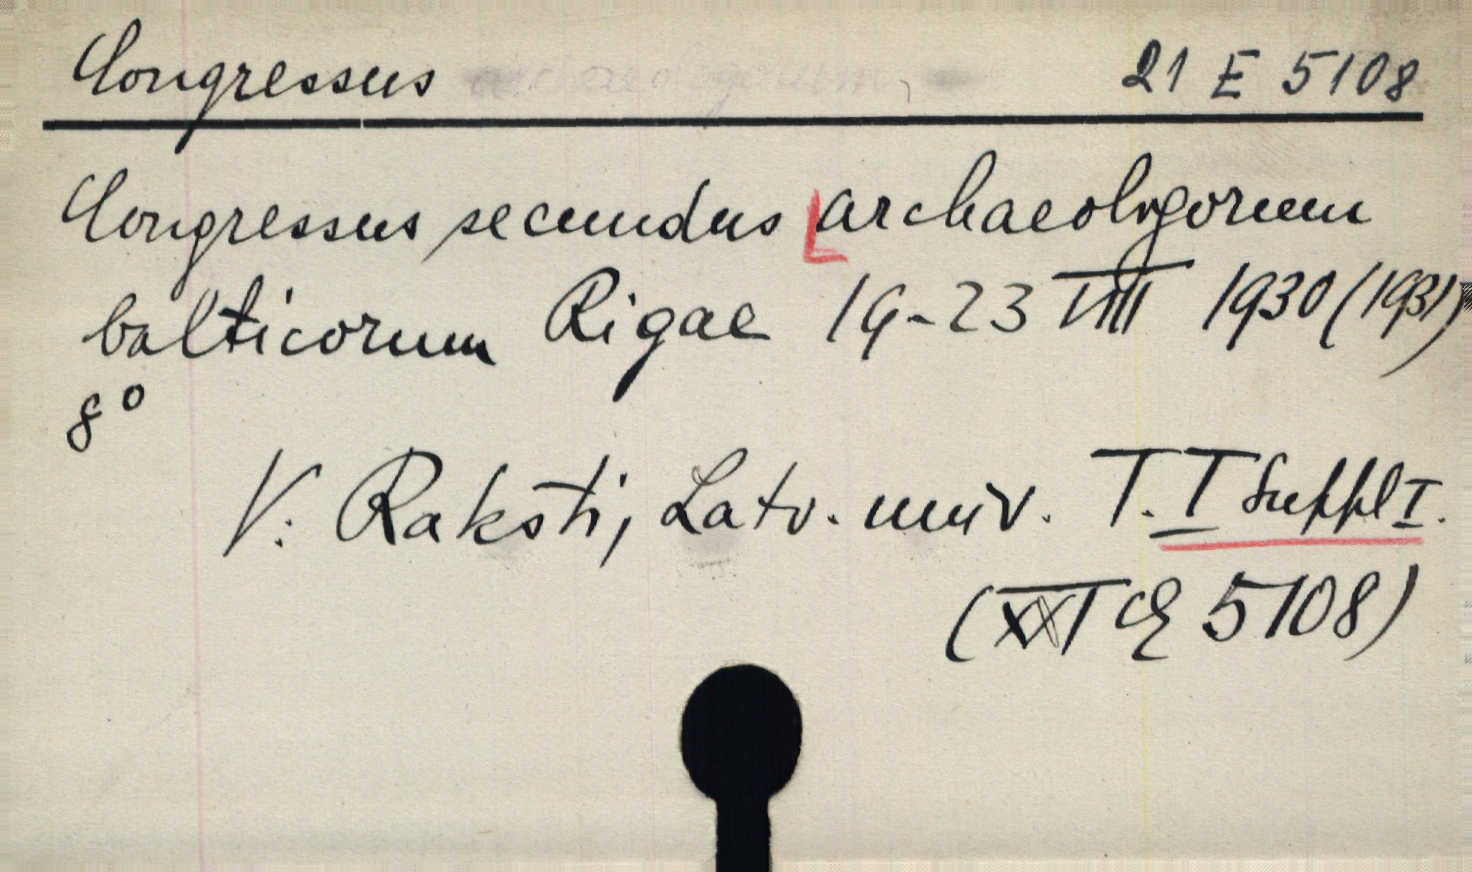 Congressus 21 E 5108
Congressus secundus archaeologorum
balticorum Rigae 19-23 VIII 1930 (1931)
8°
V. Raksti, Latv. univ. T. I Suppl I.
(XXI E 5108)